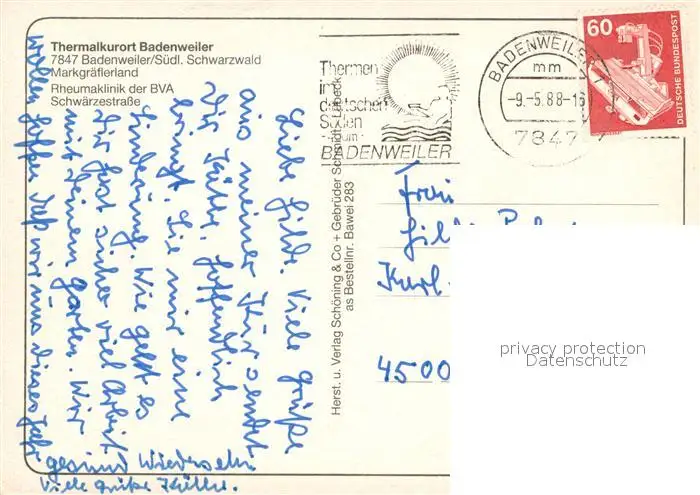 Thermalkurort Badenweiler
7847 Badenweiler/Südl. Schwarzwald
Markgräflerland
Rheumaklinik der BVA
Schwärzestraße
Thermen
im
deutschen
Süden
BADENWEILER
BADENWEILER
mm
-9.-5.88-16
7847
60
DEUTSCHE BUNDESPOST
Herst. u. Verlag Schöning & Co + Gebrüder Schmidt · Lübeck
as Bestellnr. Bawei 283
Liebe Hilde. Viele Grüße
aus meiner Kur sendet
Dir Käthe. Hoffentlich
bringt Sie mir eine
Linderung. Wie geht es
Dir hast sicher viel Arbeit
mit Deinem Garten. Wir
wollen hoffen daß wir uns dieses Jahr
gesund wiedersehn
Viele Grüße Käthe.
Frau
4500
privacy protection
Datenschutz